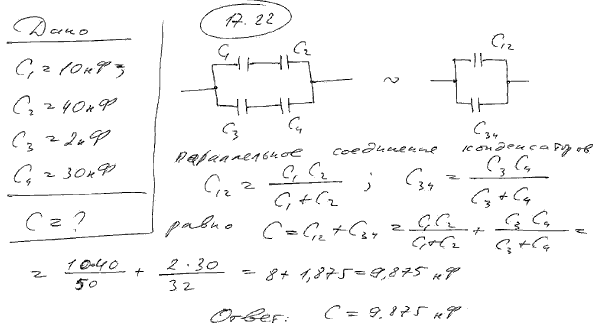 17.22
Дано
C₁ = 10 нФ;
C₂ = 40 нФ
C₃ = 2 нФ
C₄ = 30 нФ
C = ?
C₁ C₂
C₃ C₄
~
C₁₂
C₃₄
параллельное соединение конденсаторов
C₁₂ = C₁ C₂ / C₁ + C₂ ; C₃₄ = C₃ C₄ / C₃ + C₄
равно C = C₁₂ + C₃₄ = C₁C₂ / C₁+C₂ + C₃ C₄ / C₃ + C₄ =
= 10·40 / 50 + 2·30 / 32 = 8 + 1,875 = 9,875 нФ
Ответ: C = 9.875 нФ